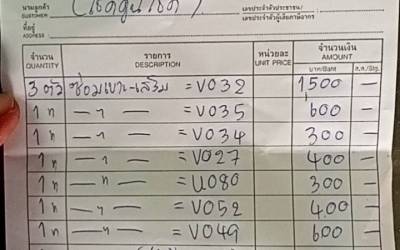 นามลูกค้า
CUSTOMER
เลขประจำตัวประชาชน/
เลขประจำตัวผู้เสียภาษีอากร
ที่อยู่
ADDRESS
จำนวน รายการ หน่วยละ จำนวนเงิน
QUANTITY DESCRIPTION UNIT PRICE AMOUNT
บาท/Baht ส.ต./Stg.
3 ตัว ซ่อมเบาะ-เสริม = V032 1500 —
1 ท — ๆ — = V035 600 —
1 ท — ๆ — = V034 300 —
1 ท — ๆ — = V027 400 —
1 ท — ท — = U080 300 —
1 ท — ๆ — = V052 400 —
1 ท — ๆ — = V049 600 —